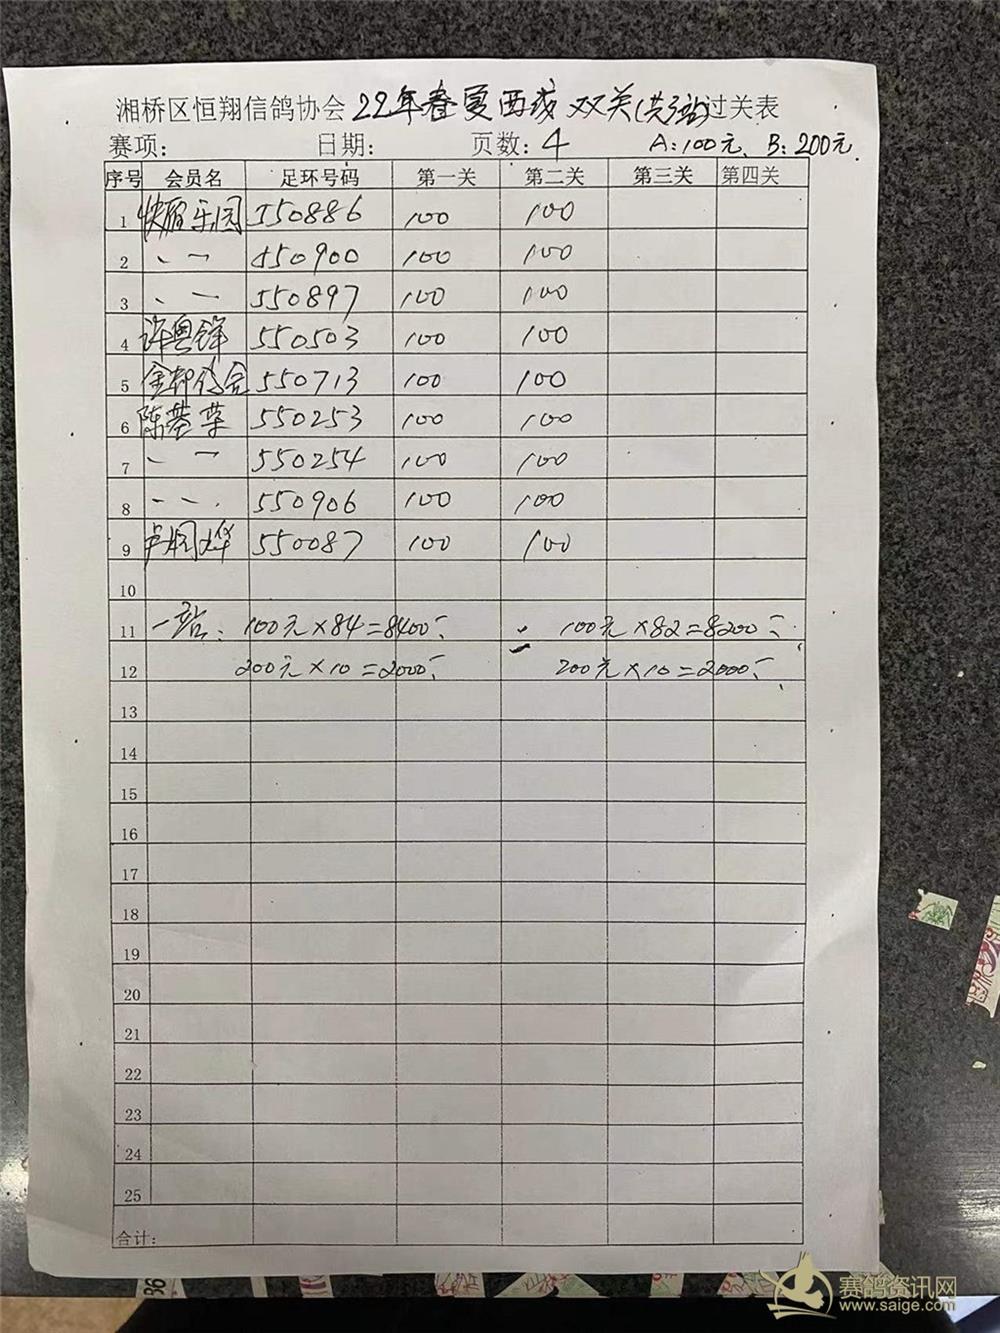 湘桥区恒翔信鸽协会22年春夏西线双关(共3站)过关表
赛项: 日期: 页数:4 A:100元、B:200元.
序号 会员名 足环号码 第一关 第二关 第三关 第四关
1 乐园 550886 100 100
2 、一 550900 100 100
3 、一 550897 100 100
4 许粤锋 550503 100 100
5 550713 100 100
6 陈 550253 100 100
7 、一 550254 100 100
8 、一 550906 100 100
9 卢 550087 100 100
10
11 一站: 100元×84=8400 100元×82=8200
12 200元×10=2000 200元×10=2000
13
14
15
16
17
18
19
20
21
22
23
24
25
合计:
36
赛鸽资讯网
www.saige.com